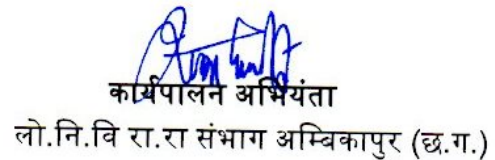 कार्यपालन अभियंता
लो.नि.वि रा.रा संभाग अम्बिकापुर (छ.ग.)